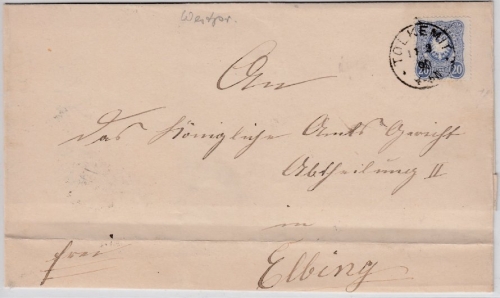 Westpr.
TOLKEMIT
20 20
An
das Königliche Amts Gericht
Abtheilung II
in
frei
Elbing